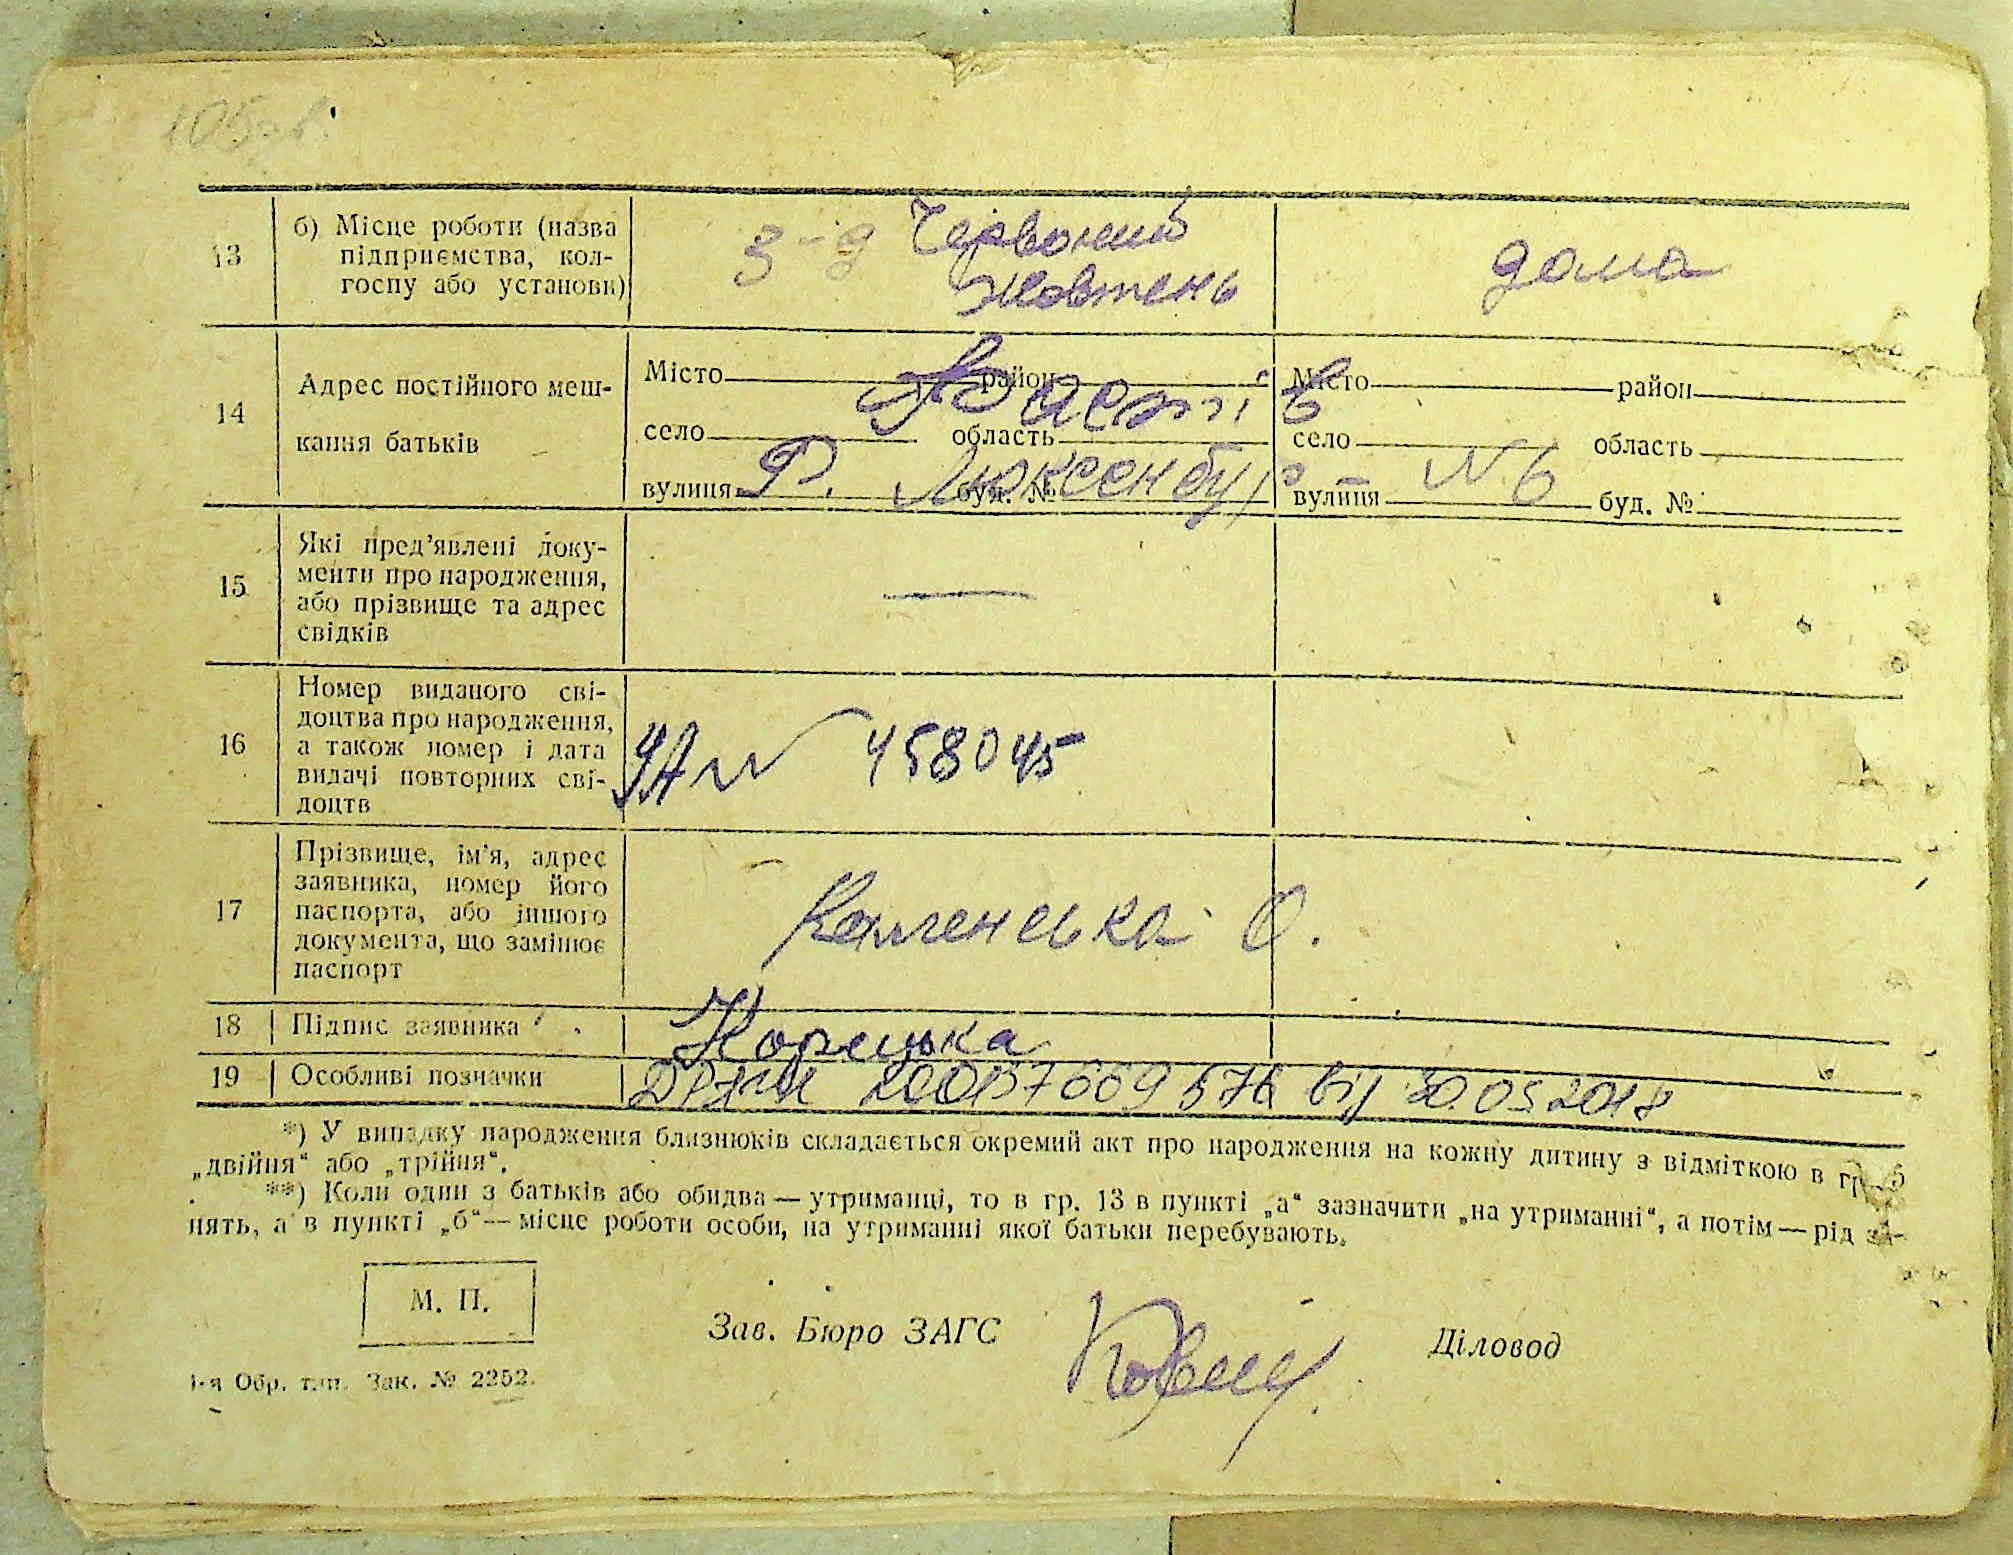 105зв.
13
б) Місце роботи (назва
підприємства, кол-
госпу або установи)
з-д Червоний
Жовтень
дома
14
Адрес постійного меш-
кання батьків
Місто район
Фастів
село область
вулиця Р. Люксенбург буд. №
Місто район
село область
вулиця № 6 буд. №
15
Які пред'явлені доку-
менти про народження,
або прізвище та адрес
свідків
—
16
Номер виданого сві-
доцтва про народження,
а також номер і дата
видачі повторних сві-
доцтв
УА № 458045
17
Прізвище, ім'я, адрес
заявника, номер його
паспорта, або іншого
документа, що замінює
паспорт
Каменська О.
18
Підпис заявника
Корецька
19
Особливі позначки
від 30.05.2018
*) У випадку народження близнюків складається окремий акт про народження на кожну дитину з відміткою в гр. 5
„двійня“ або „трійня“.
**) Коли один з батьків або обидва — утриманці, то в гр. 13 в пункті „а“ зазначити „на утриманні“, а потім — рід за-
нять, а в пункті „б“ — місце роботи особи, на утриманні якої батьки перебувають.
М. П.
Зав. Бюро ЗАГС
Діловод
1-я Обр. тип. Зак. № 2252.